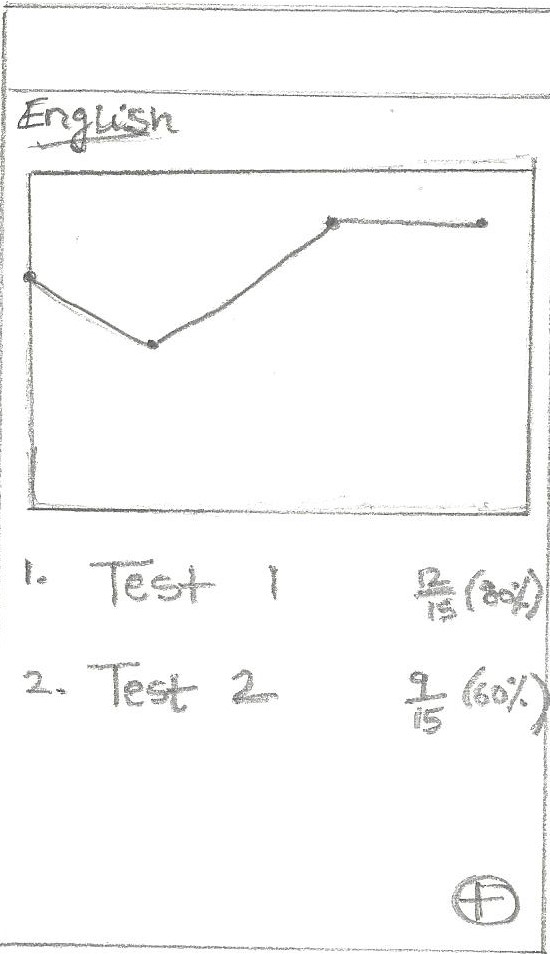 English
1. Test 1 12/15 (80%)
2. Test 2 9/15 (60%)
+